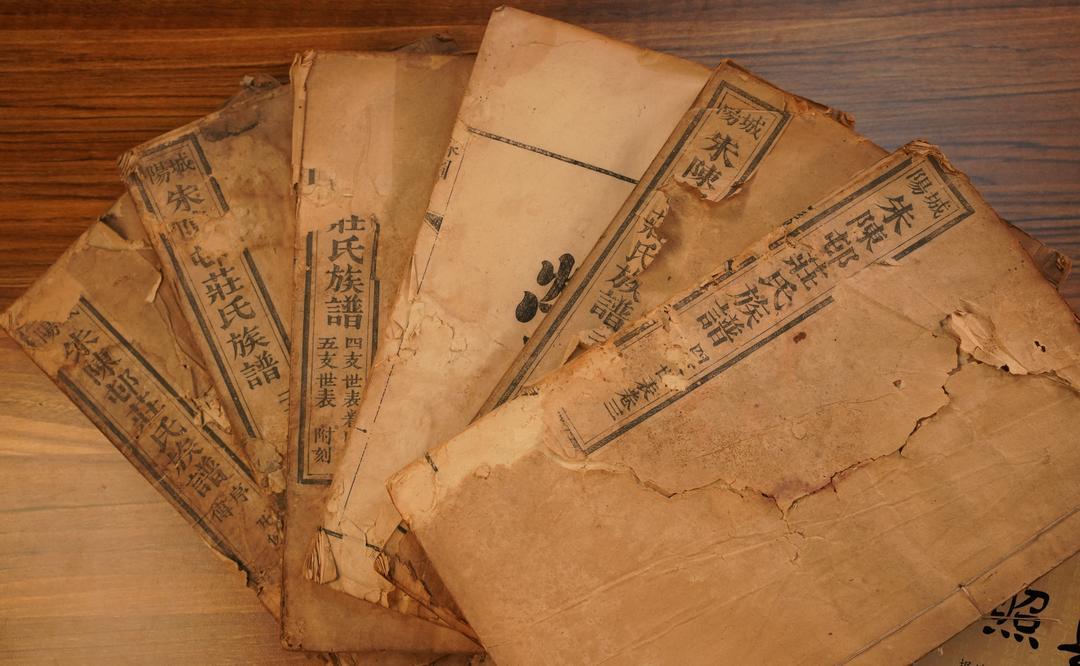 朱陳邨莊氏族譜
舊序
陽城
朱邨莊氏族譜
莊氏族譜
四支世表卷
五支世表 附刻
陽城
朱陳
莊氏族譜
陽城
朱陳邨莊氏族譜
四
表卷三
照